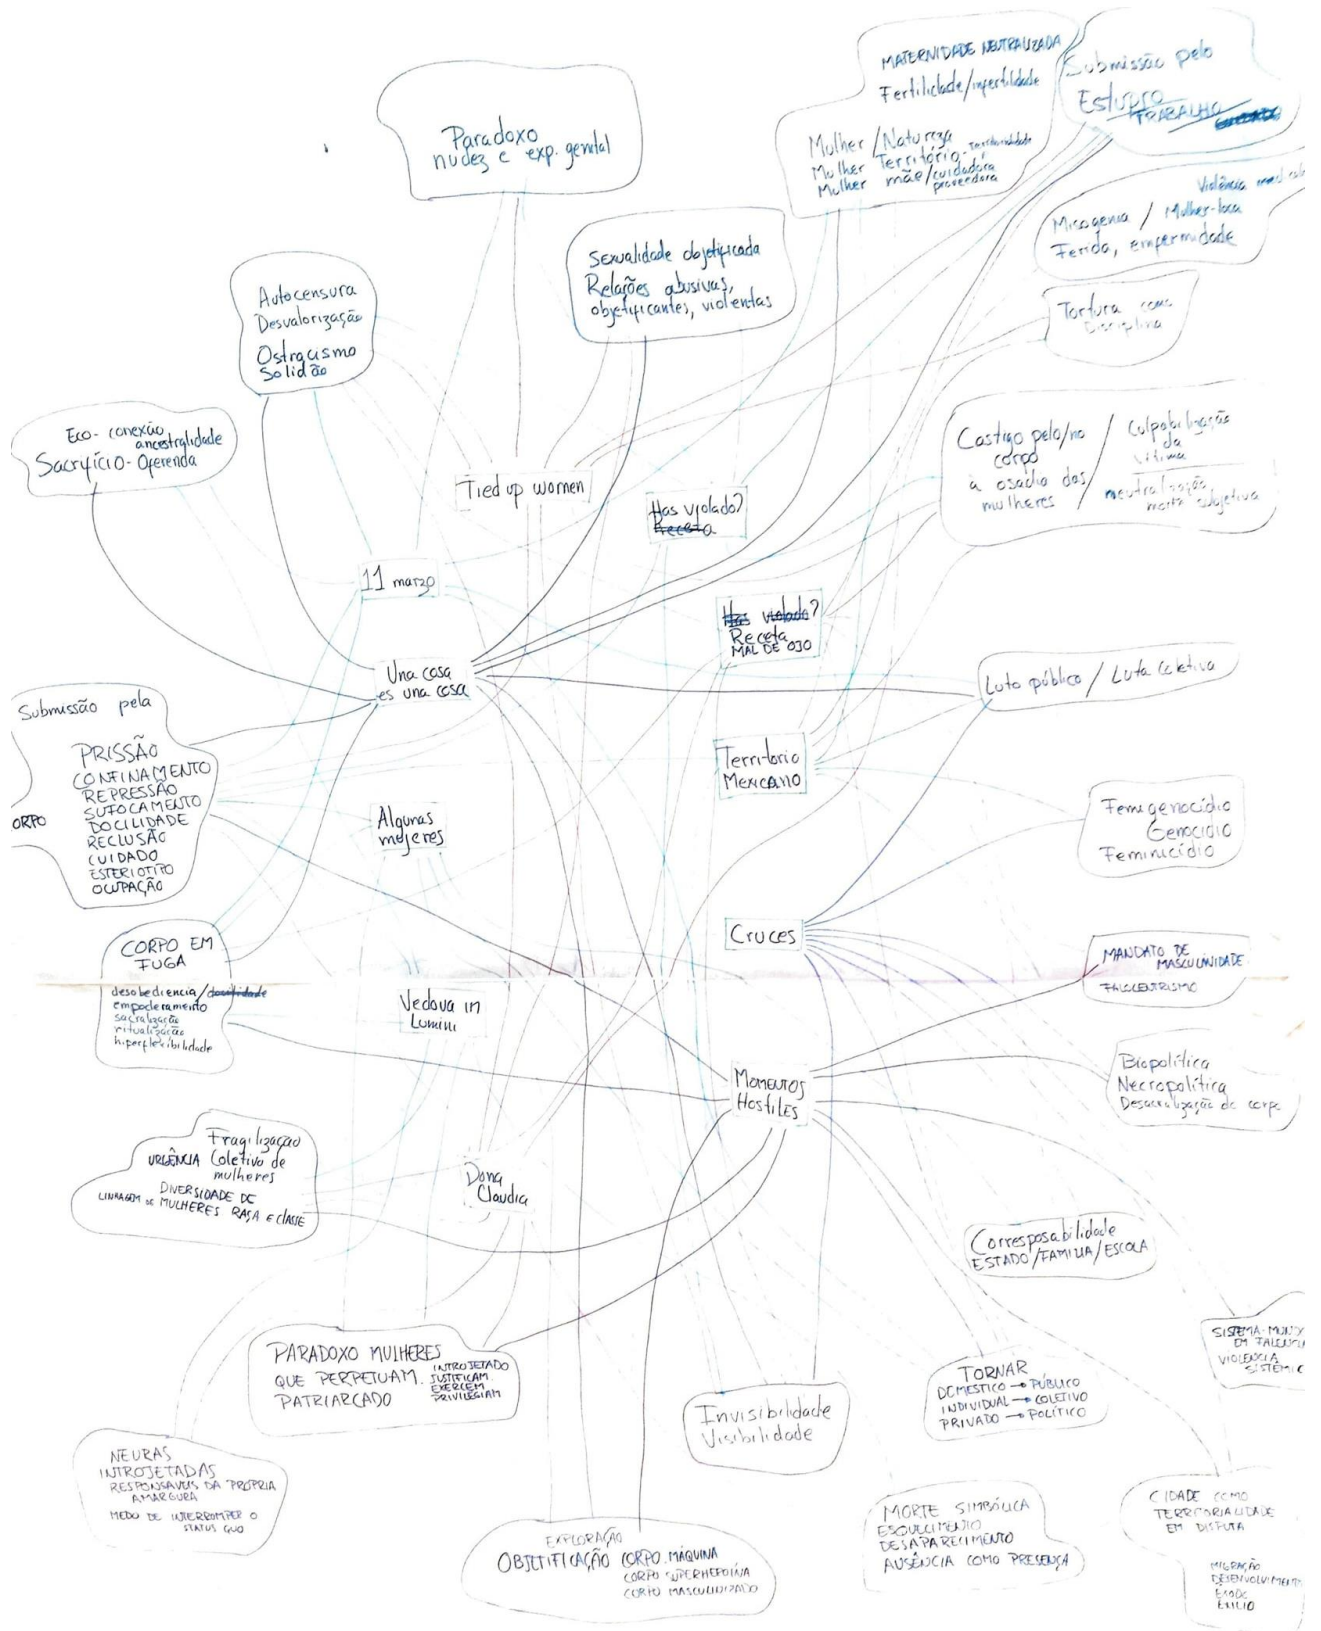 MATERNIDADE NEUTRALIZADA
Fertilidade/infertilidade
Mulher/Natureza
Mulher Território-territorialidade
Mulher mãe/cuidadora
proveedora
Submissão pelo
Estupro
TRABALHO
Paradoxo
nudez e exp. genital
Violência
Misogenia / Mulher-loca
Ferida, enfermidade
Sexualidade objetificada
Relações abusivas,
objetificantes, violentas
Autocensura
Desvalorização
Ostracismo
Solidão
Tortura como
Disciplina
Eco-conexão
ancestralidade
Sacrifício-Oferenda
Castigo pelo/no
corpo
à osadia das
mulheres
/ Culpabilização
da
vítima
neutralização
morte subjetiva
Tied up women
Has violado?
Receta
11 marzo
Has violado?
Receta
MAL DE OJO
Una cosa
es una cosa
Luto público / Luta coletiva
Submissão pela
PRISSÃO
CONFINAMENTO
REPRESSÃO
SUFOCAMENTO
DOCILIDADE
RECLUSÃO
CUIDADO
ESTERIOTIPO
OCUPAÇÃO
ORPO
Territorio
Mexicano
Algunas
mujeres
Femigenocídio
Genocidio
Feminicídio
Cruces
CORPO EM
FUGA
desobediencia/docilidade
empoderamento
sacralização
ritualização
hiperflexibilidade
MANDATO DE
MASCULINIDADE
FALOCENTRISMO
Vedova in
Lumini
Momentos
Hostiles
Biopolítica
Necropolítica
Desacralização do corpo
Fragilização
URGÊNCIA Coletivo de
mulheres
DIVERSIDADE DE
LINHAGEM DE MULHERES RAÇA E CLASSE
Dona
Claudia
Corresposabilidade
ESTADO/FAMILIA/ESCOLA
SISTEMA-MUND
EM FALENCIA
VIOLENCIA
SISTEMIC
PARADOXO MULHERES
QUE PERPETUAM
PATRIARCADO
INTROJETADO
JUSTIFICAM
EXERCEM
PRIVILEGIAM
TORNAR
DOMESTICO → PÚBLICO
INDIVIDUAL → COLETIVO
PRIVADO → POLÍTICO
Invisibilidade
Visibilidade
NEURAS
INTROJETADAS
RESPONSAVEIS DA PROPRIA
AMARGURA
MEDO DE INTERROMPER O
STATUS QUO
MORTE SIMBÓLICA
ESQUECIMENTO
DESAPARECIMENTO
AUSÊNCIA COMO PRESENÇA
CIDADE COMO
TERRITORIALIDADE
EM DISPUTA
MIGRAÇÃO
DESENVOLVIMENTO
ÊXODO
EXILIO
EXPLORAÇÃO
OBJETIFICAÇÃO CORPO MÁQUINA
CORPO SUPERHEROÍNA
CORPO MASCULINIZADO